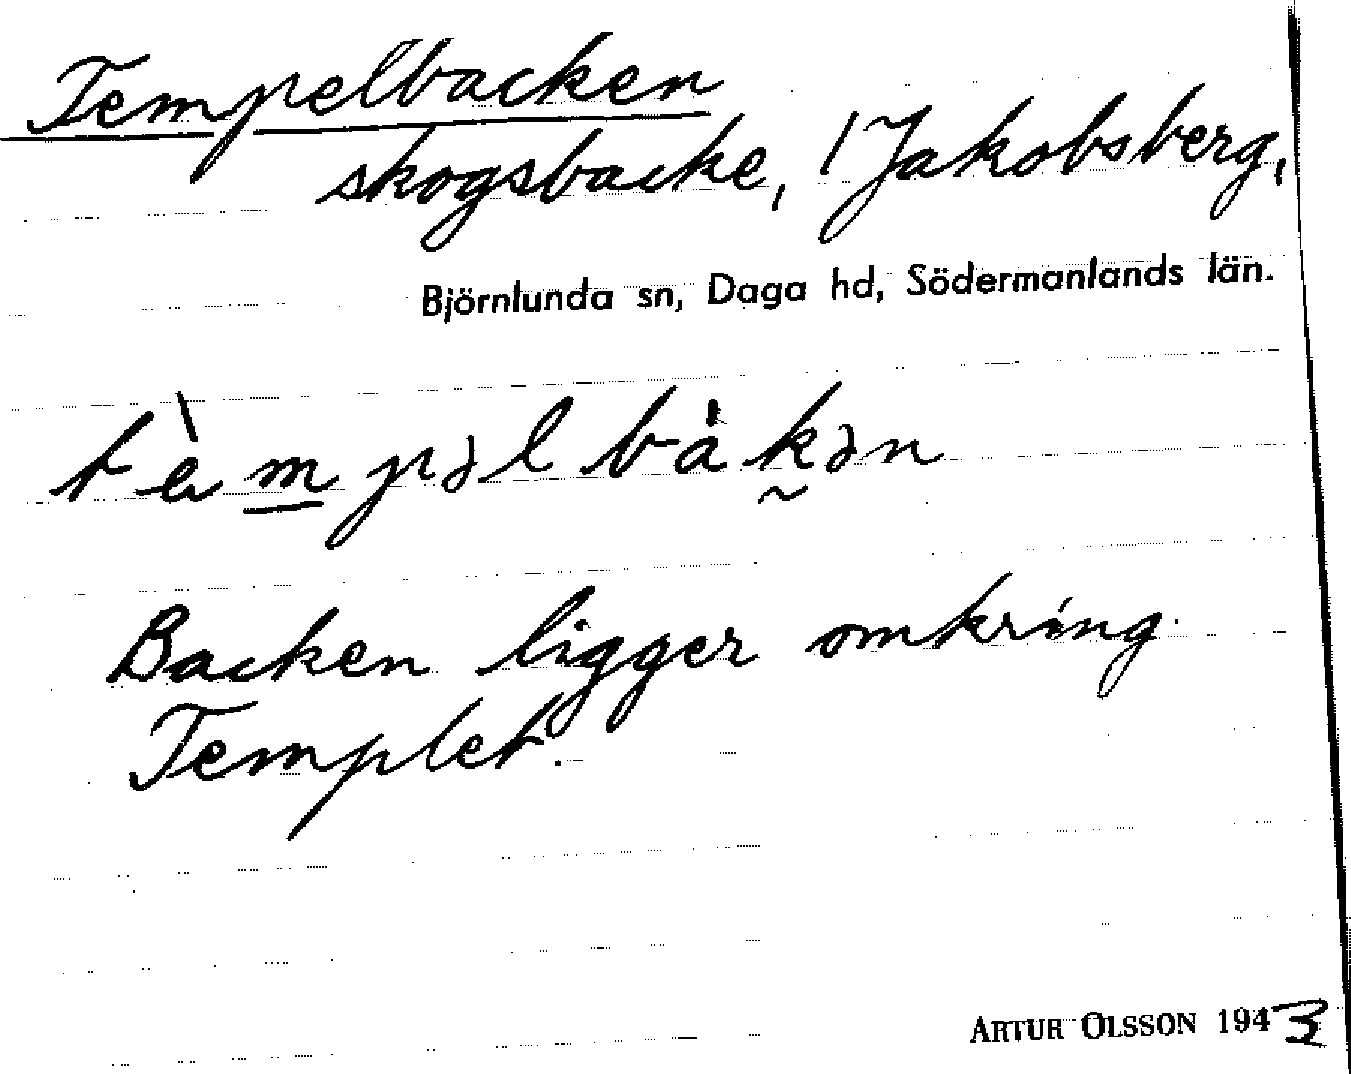 Tempelbacken
skogsbacke, 1 Jakobsberg,
Björnlunda sn, Daga hd, Södermanlands län.
tèmpəlbàkən
Backen ligger omkring
Templet.
ARTUR OLSSON 1943